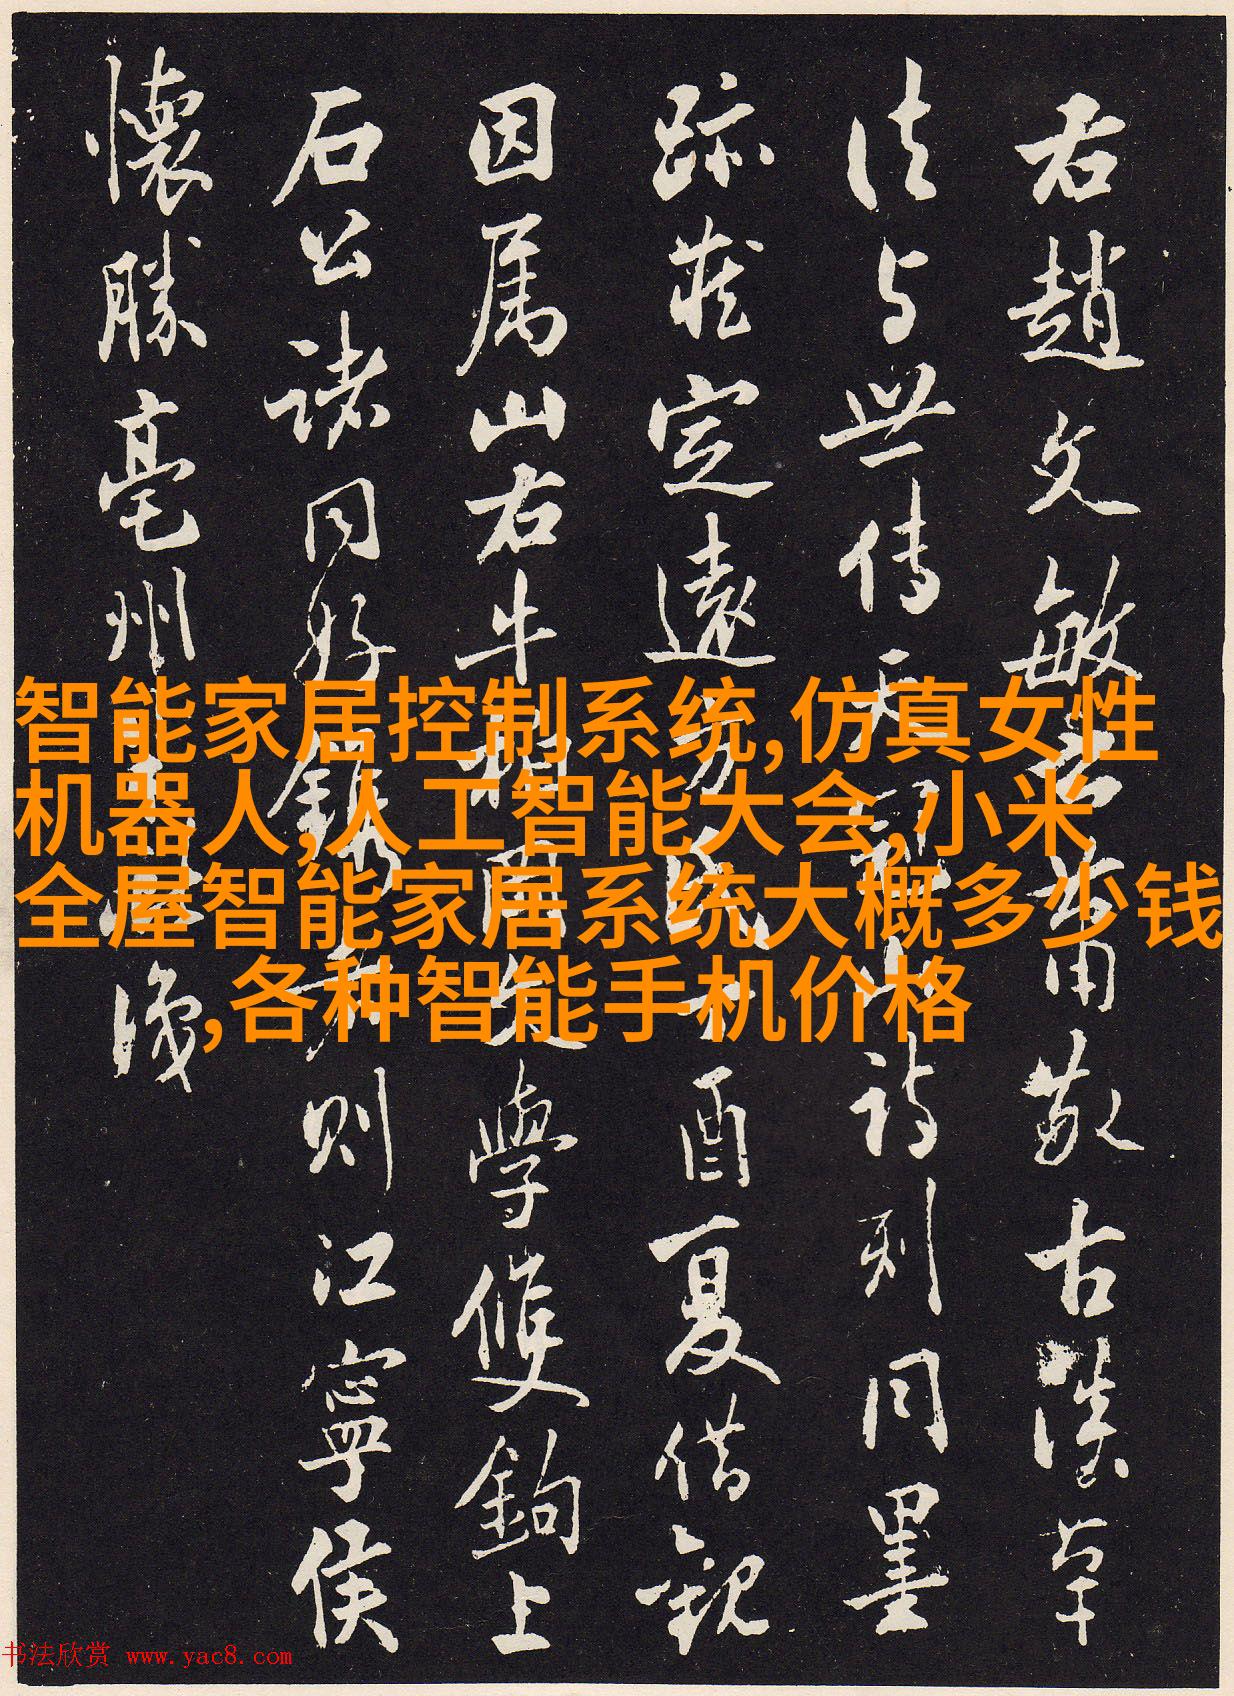 右趙文敏古草
法与世傳天山詩刻同墨
跡定遠方酉夏借観
因属山右牛文學鉤上
石公諸同好鐫者則江寧侯
懷勝亳州
智能家居控制系统,仿真女性
机器人,人工智能大会,小米
全屋智能家居系统大概多少钱
,各种智能手机价格
书法欣赏 www.yac8.com